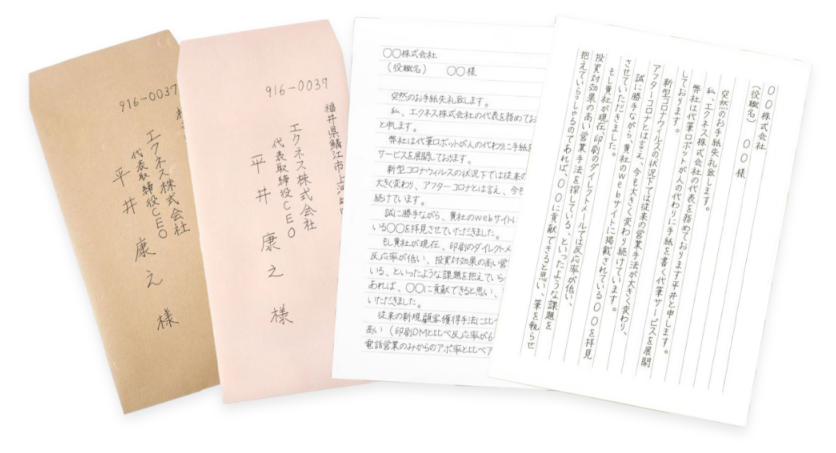 916-0037
エクネス株式会社
代表取締役CEO
平井 康之 様
916-0037
福井県鯖江市上河
エクネス株式会社
代表取締役CEO
平井 康之 様
〇〇株式会社
(役職名) 〇〇様
突然のお手紙失礼致します。
私、エクネス株式会社の代表を務めてお
と申します。
弊社は代筆ロボットが人の代わりに手紙を
サービスを展開しております。
新型コロナウィルスの状況下では従来の
大きく変わり、アフターコロナとは言え、今も
続けています。
誠に勝手ながら、貴社のwebサイト
いる〇〇を拝見させていただきました。
もし貴社が現在、印刷のダイレクトメ
反応率が低い、投資対効果の高い営
いる、といったような課題を抱えていら
あれば、〇〇に貢献できると思い、
いただきました。
従来の新規顧客獲得手法に比べ
高い(印刷DMと比べ反応率が6
電話営業のみからのアポ率と比べア
〇〇株式会社
(役職名) 〇〇 様
突然のお手紙失礼致します。
私、エクネス株式会社の代表を務めております平井と申します。
弊社は代筆ロボットが人の代わりに手紙を書く代筆サービスを展開
しております。
新型コロナウィルスの状況下では従来の営業手法が大きく変わり、
アフターコロナとは言え、今も大きく変わり続けています。
誠に勝手ながら、貴社のwebサイトに掲載されている〇〇を拝見
させていただきました。
もし貴社が現在、印刷のダイレクトメールでは反応率が低い、
投資対効果の高い営業手法を探している、といったような課題を
抱えていらっしゃるのであれば、〇〇に貢献できると思い、筆を執らせ